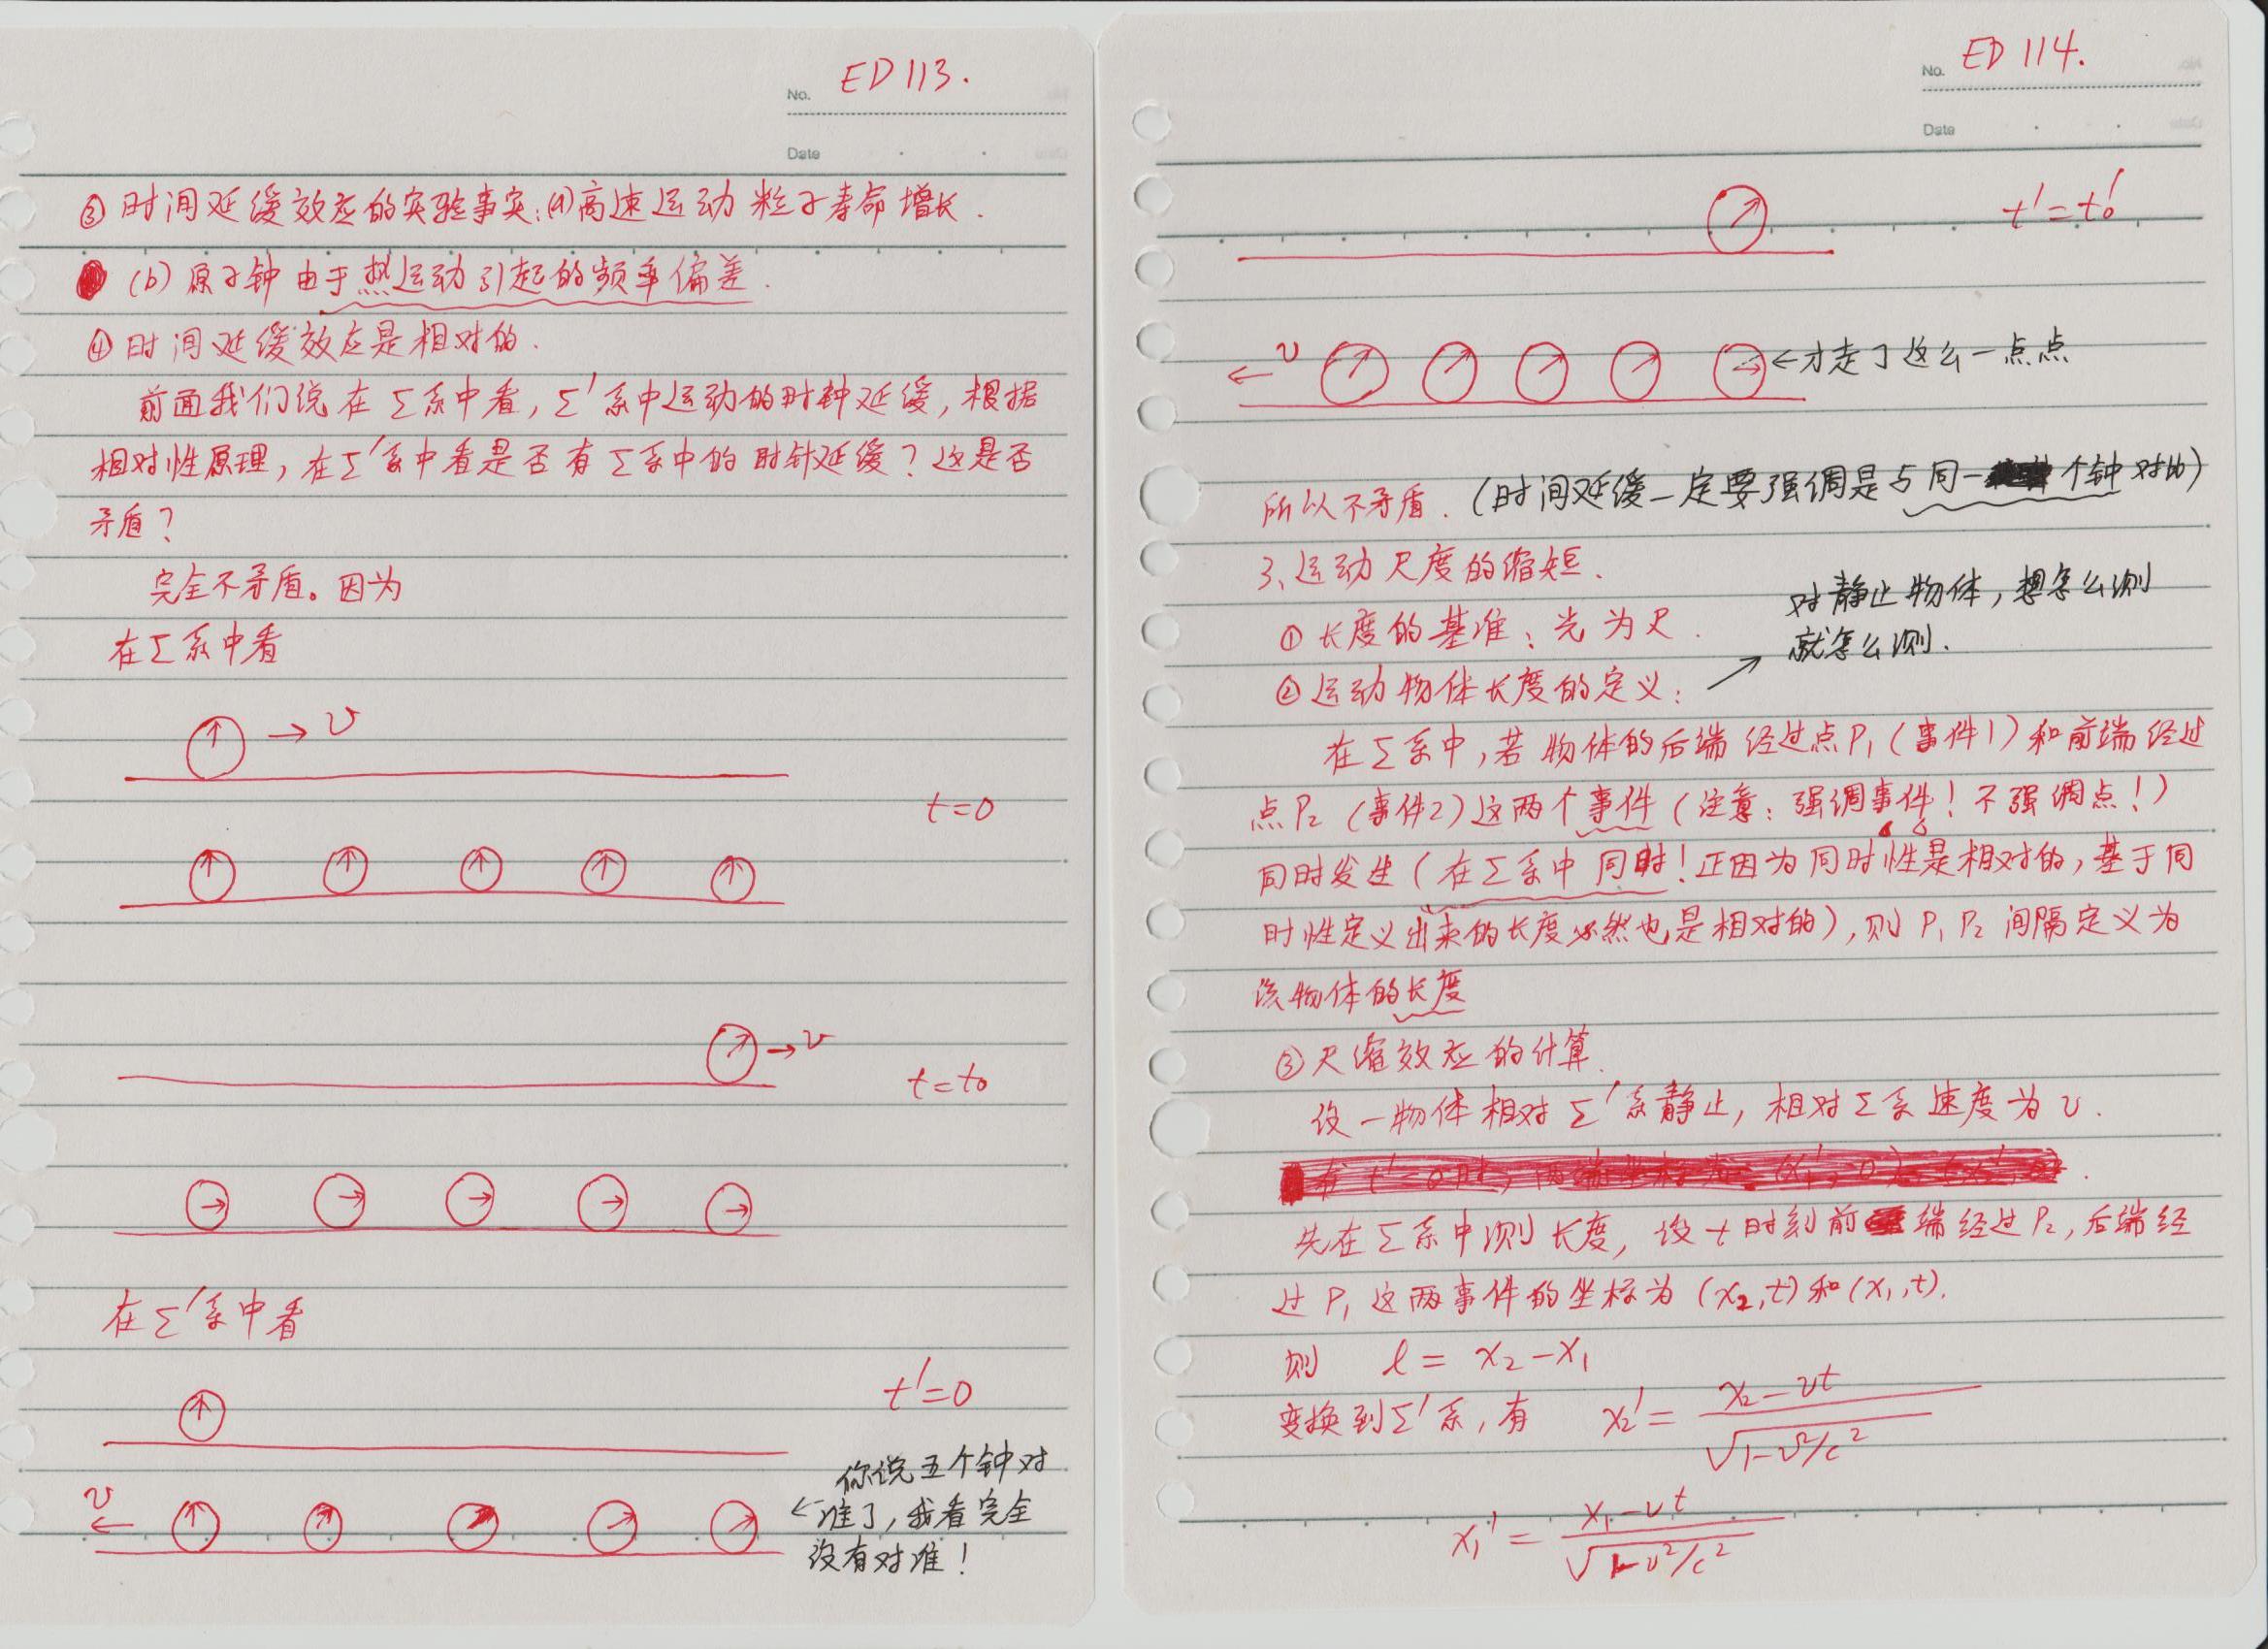 No. ED 113.
Date
③ 时间延缓效应的实验事实:(a)高速运动粒子寿命增长.
(b) 原子钟由于热运动引起的频率偏差.
④ 时间延缓效应是相对的.
前面我们说在Σ系中看,Σ′系中运动的时钟延缓,根据
相对性原理,在Σ′系中看是否有Σ系中的时钟延缓?这是否
矛盾?
完全不矛盾。因为
在Σ系中看
→ v
t=0
→ v
t=t₀
在Σ′系中看
t′=0
v
←
你说五个钟对
← 准了,我看完全
没有对准!
No. ED 114.
Date
t′=t₀′
← v
←才走了这么一点点
所以不矛盾. (时间延缓一定要强调是与同一个钟对比)
3、运动尺度的缩短.
① 长度的基准:光为尺.
对静止物体,想怎么测
就怎么测.
② 运动物体长度的定义: ↗
在Σ系中,若物体的后端经过点P₁(事件1)和前端经过
点P₂(事件2)这两个事件(注意:强调事件!不强调点!)
同时发生(在Σ系中同时!正因为同时性是相对的,基于同
时性定义出来的长度必然也是相对的),则P₁P₂间隔定义为
该物体的长度
③ 尺缩效应的计算.
设一物体相对Σ′系静止,相对Σ系速度为v.
先在Σ系中测长度,设t时刻前端经过P₂,后端经
过P₁这两事件的坐标为(x₂,t)和(x₁,t).
则 l = x₂-x₁
变换到Σ′系,有 x₂′ = (x₂-vt)/√(1-v²/c²)
x₁′ = (x₁-vt)/√(1-v²/c²)